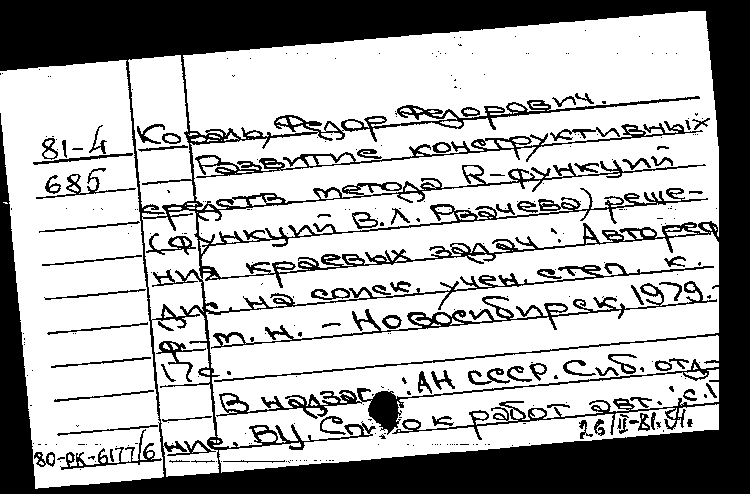 81-4
685
Коваль, Федор Федорович.
Развитие конструктивных
средств метода R-функций
(функций В.Л. Рвачева) реше-
ния краевых задач: Автореф
дис. на соиск. учен. степ. к.
ф-м. н. - Новосибирск, 1979.-
17с.
В надзаг.: АН СССР. Сиб. отд-
ние. ВЦ. Список работ авт.: с.
80-РК-6177/6
26/II-81.